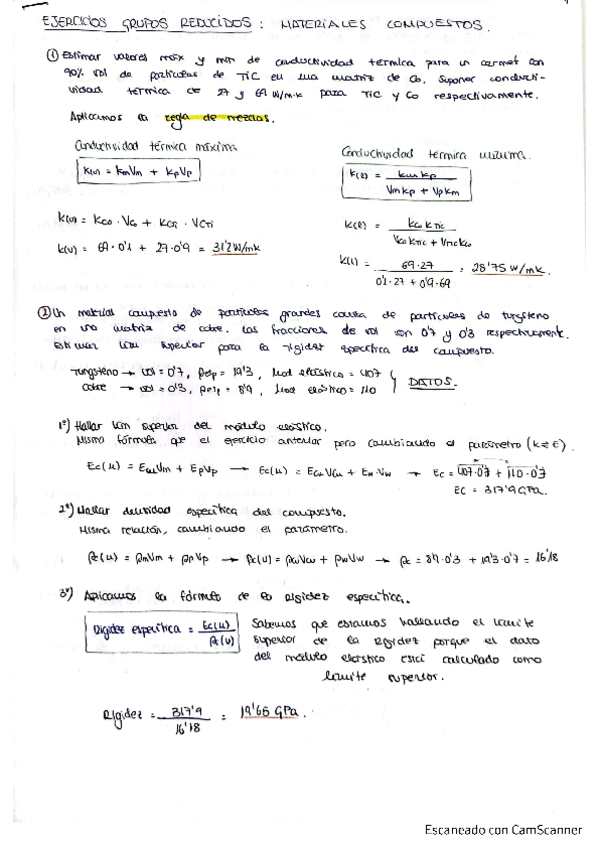 EJERCICIOS GRUPOS REDUCIDOS: MATERIALES COMPUESTOS.
① Estimar valores máx y mín de conductividad térmica para un cermet con
90% vol de partículas de TiC en una matriz de Co. Suponer conducti-
vidad térmica de 27 y 69 W/m·K para TiC y Co respectivamente.
Aplicamos la regla de mezclas.
Conductividad térmica máxima
K(u) = KmVm + KpVp
K(u) = KCo · VCo + KCTi · VCTi
K(u) = 69 · 0'1 + 27 · 0'9 = 31'2 W/mK
Conductividad térmica mínima.
K(e) = KmKp / VmKp + VpKm
K(e) = KCo KTiC / VCo KTiC + VTiC KCo
K(l) = 69·27 / 0'1·27 + 0'9·69 = 28'75 W/mK.
② Un material compuesto de partículas grandes consta de partículas de tungsteno
en una matriz de cobre. Las fracciones de vol son 0'7 y 0'3 respectivamente.
Estimar lím superior para la rigidez específica del compuesto.
Tungsteno → vol = 0'7, ρesp = 19'3, Mod elástico = 407
Cobre → vol = 0'3, ρesp = 8'9, Mod elástico = 110
DATOS.
1º) Hallar lím superior del módulo elástico.
Misma fórmula que el ejercicio anterior pero cambiando el parámetro (K⇄E).
Ec(u) = EmVm + EpVp → Ec(u) = ECuVCu + EwVw → Ec = 407·0'7 + 110·0'3
EC = 317'9 GPa.
2º) Hallar densidad específica del compuesto.
Misma relación, cambiando el parámetro.
ρc(u) = ρmVm + ρpVp → ρc(u) = ρCuVCu + ρwVw → ρc = 8'9·0'3 + 19'3·0'7 = 16'18
3º) Aplicamos la fórmula de la rigidez específica.
Rigidez específica = Ec(u) / ρc(u)
Sabemos que estamos hallando el límite
superior de la rigidez porque el dato
del módulo elástico está calculado como
límite superior.
Rigidez = 317'9 / 16'18 = 19'65 GPa.
Escaneado con CamScanner